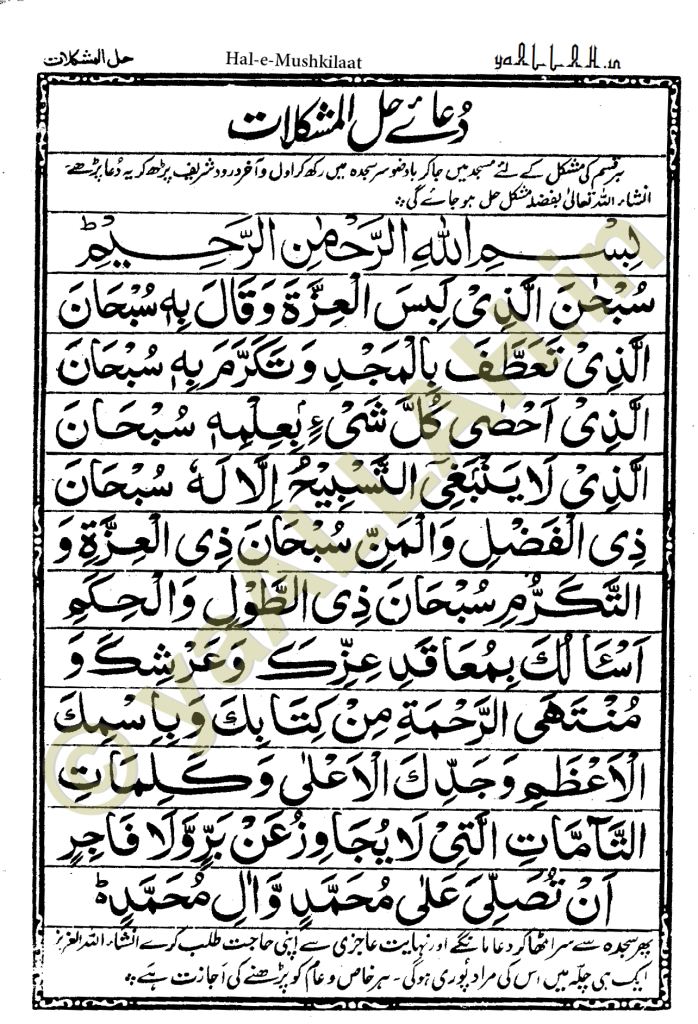 حل المشکلات Hal-e-Mushkilaat yaALLAH.in
دُعائے حل المشکلات
ہر قسم کی مشکل کے لئے مسجد میں جا کر باوضو سر سجدہ میں رکھ کر اول و آخر درود شریف پڑھ کر یہ دُعا پڑھے۔
انشاء اللہ تعالیٰ بفضلہٖ مشکل حل ہو جائے گی
بِسْمِ اللهِ الرَّحْمٰنِ الرَّحِيْمِ ط
سُبْحٰنَ الَّذِیْ لَبِسَ الْعِزَّةَ وَقَالَ بِهٖ سُبْحَانَ
الَّذِیْ تَعَطَّفَ بِالْمَجْدِ وَتَكَرَّمَ بِهٖ سُبْحَانَ
الَّذِیْ اَحْصٰی كُلَّ شَیْءٍ بِعِلْمِهٖ سُبْحَانَ
الَّذِیْ لَا يَنْبَغِی التَّسْبِيْحُ اِلَّا لَهٗ سُبْحَانَ
ذِی الْفَضْلِ وَالْمَنِّ سُبْحَانَ ذِی الْعِزَّةِ وَ
التَّكَرُّمِ سُبْحَانَ ذِی الطَّوْلِ وَالْحِكَمِ
اَسْئَالُكَ بِمُعَاقَدِ عِزِّكَ وَعَرْشِكَ وَ
مُنْتَهَی الرَّحْمَةِ مِنْ كِتَابِكَ وَبِاسْمِكَ
الْاَعْظَمِ وَجَدِّكَ الْاَعْلٰی وَكَلِمَاتِ
التَّآمَّاتِ الَّتِیْ لَا يُجَاوِزُ عَنْ بَرٍّ وَّلَا فَاجِرٍ
اَنْ تُصَلِّیَ عَلٰی مُحَمَّدٍ وَّاٰلِ مُحَمَّدٍ ط
پھر سجدہ سے سر اٹھا کر دعا مانگے اور نہایت عاجزی سے اپنی حاجت طلب کرے انشاء اللہ العزیز
ایک ہی چلّہ میں اس کی مراد پوری ہوگی۔ ہر خاص و عام کو پڑھنے کی اجازت ہے
© yaALLAH.in